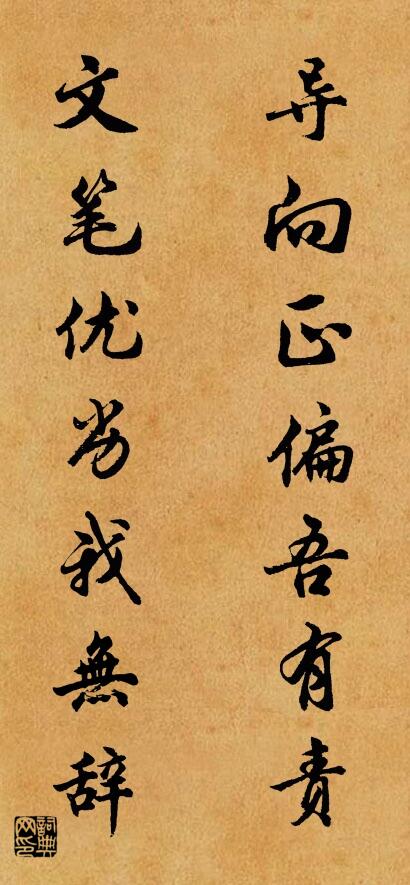 导向正偏吾有责
文笔优劣我無辞
詞典网印